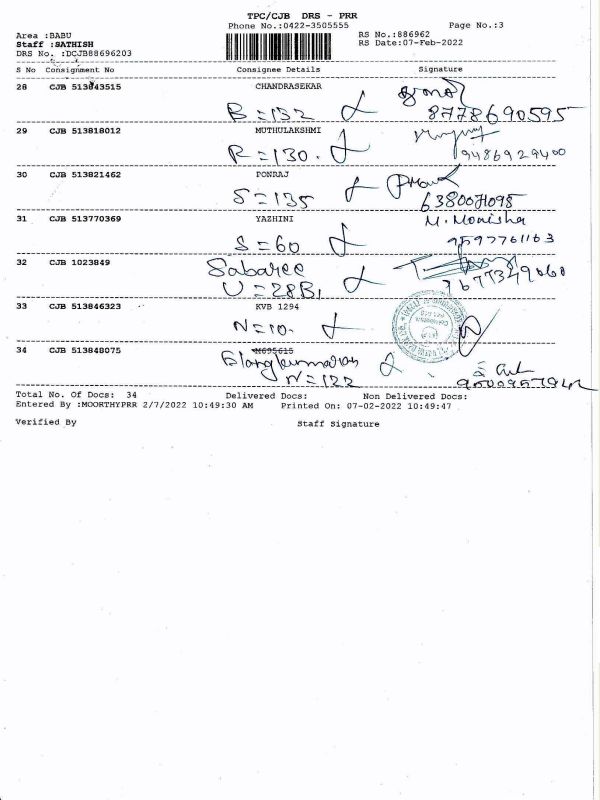 TPC/CJB DRS - PRR
Phone No.:0422-3505555 Page No.:3
Area :BABU RS No.:886962
Staff :SATHISH RS Date:07-Feb-2022
DRS No. :DCJB88696203
S No Consignment No Consignee Details Signature
28 CJB 513843515 CHANDRASEKAR
B = 132 8778690595
29 CJB 513818012 MUTHULAKSHMI
R = 130. 9486929400
30 CJB 513821462 PONRAJ
S = 135 6380071095
31 CJB 513770369 YAZHINI M. Monisha
S = 60 9597761163
32 CJB 1023849 Sabaree
U = 28B1
33 CJB 513846323 KVB 1294
N = 10.
34 CJB 513848075 M695615
Elangkumaran
N = 122
Total No. Of Docs: 34 Delivered Docs: Non Delivered Docs:
Entered By :MOORTHYPRR 2/7/2022 10:49:30 AM Printed On: 07-02-2022 10:49:47
Verified By Staff Signature